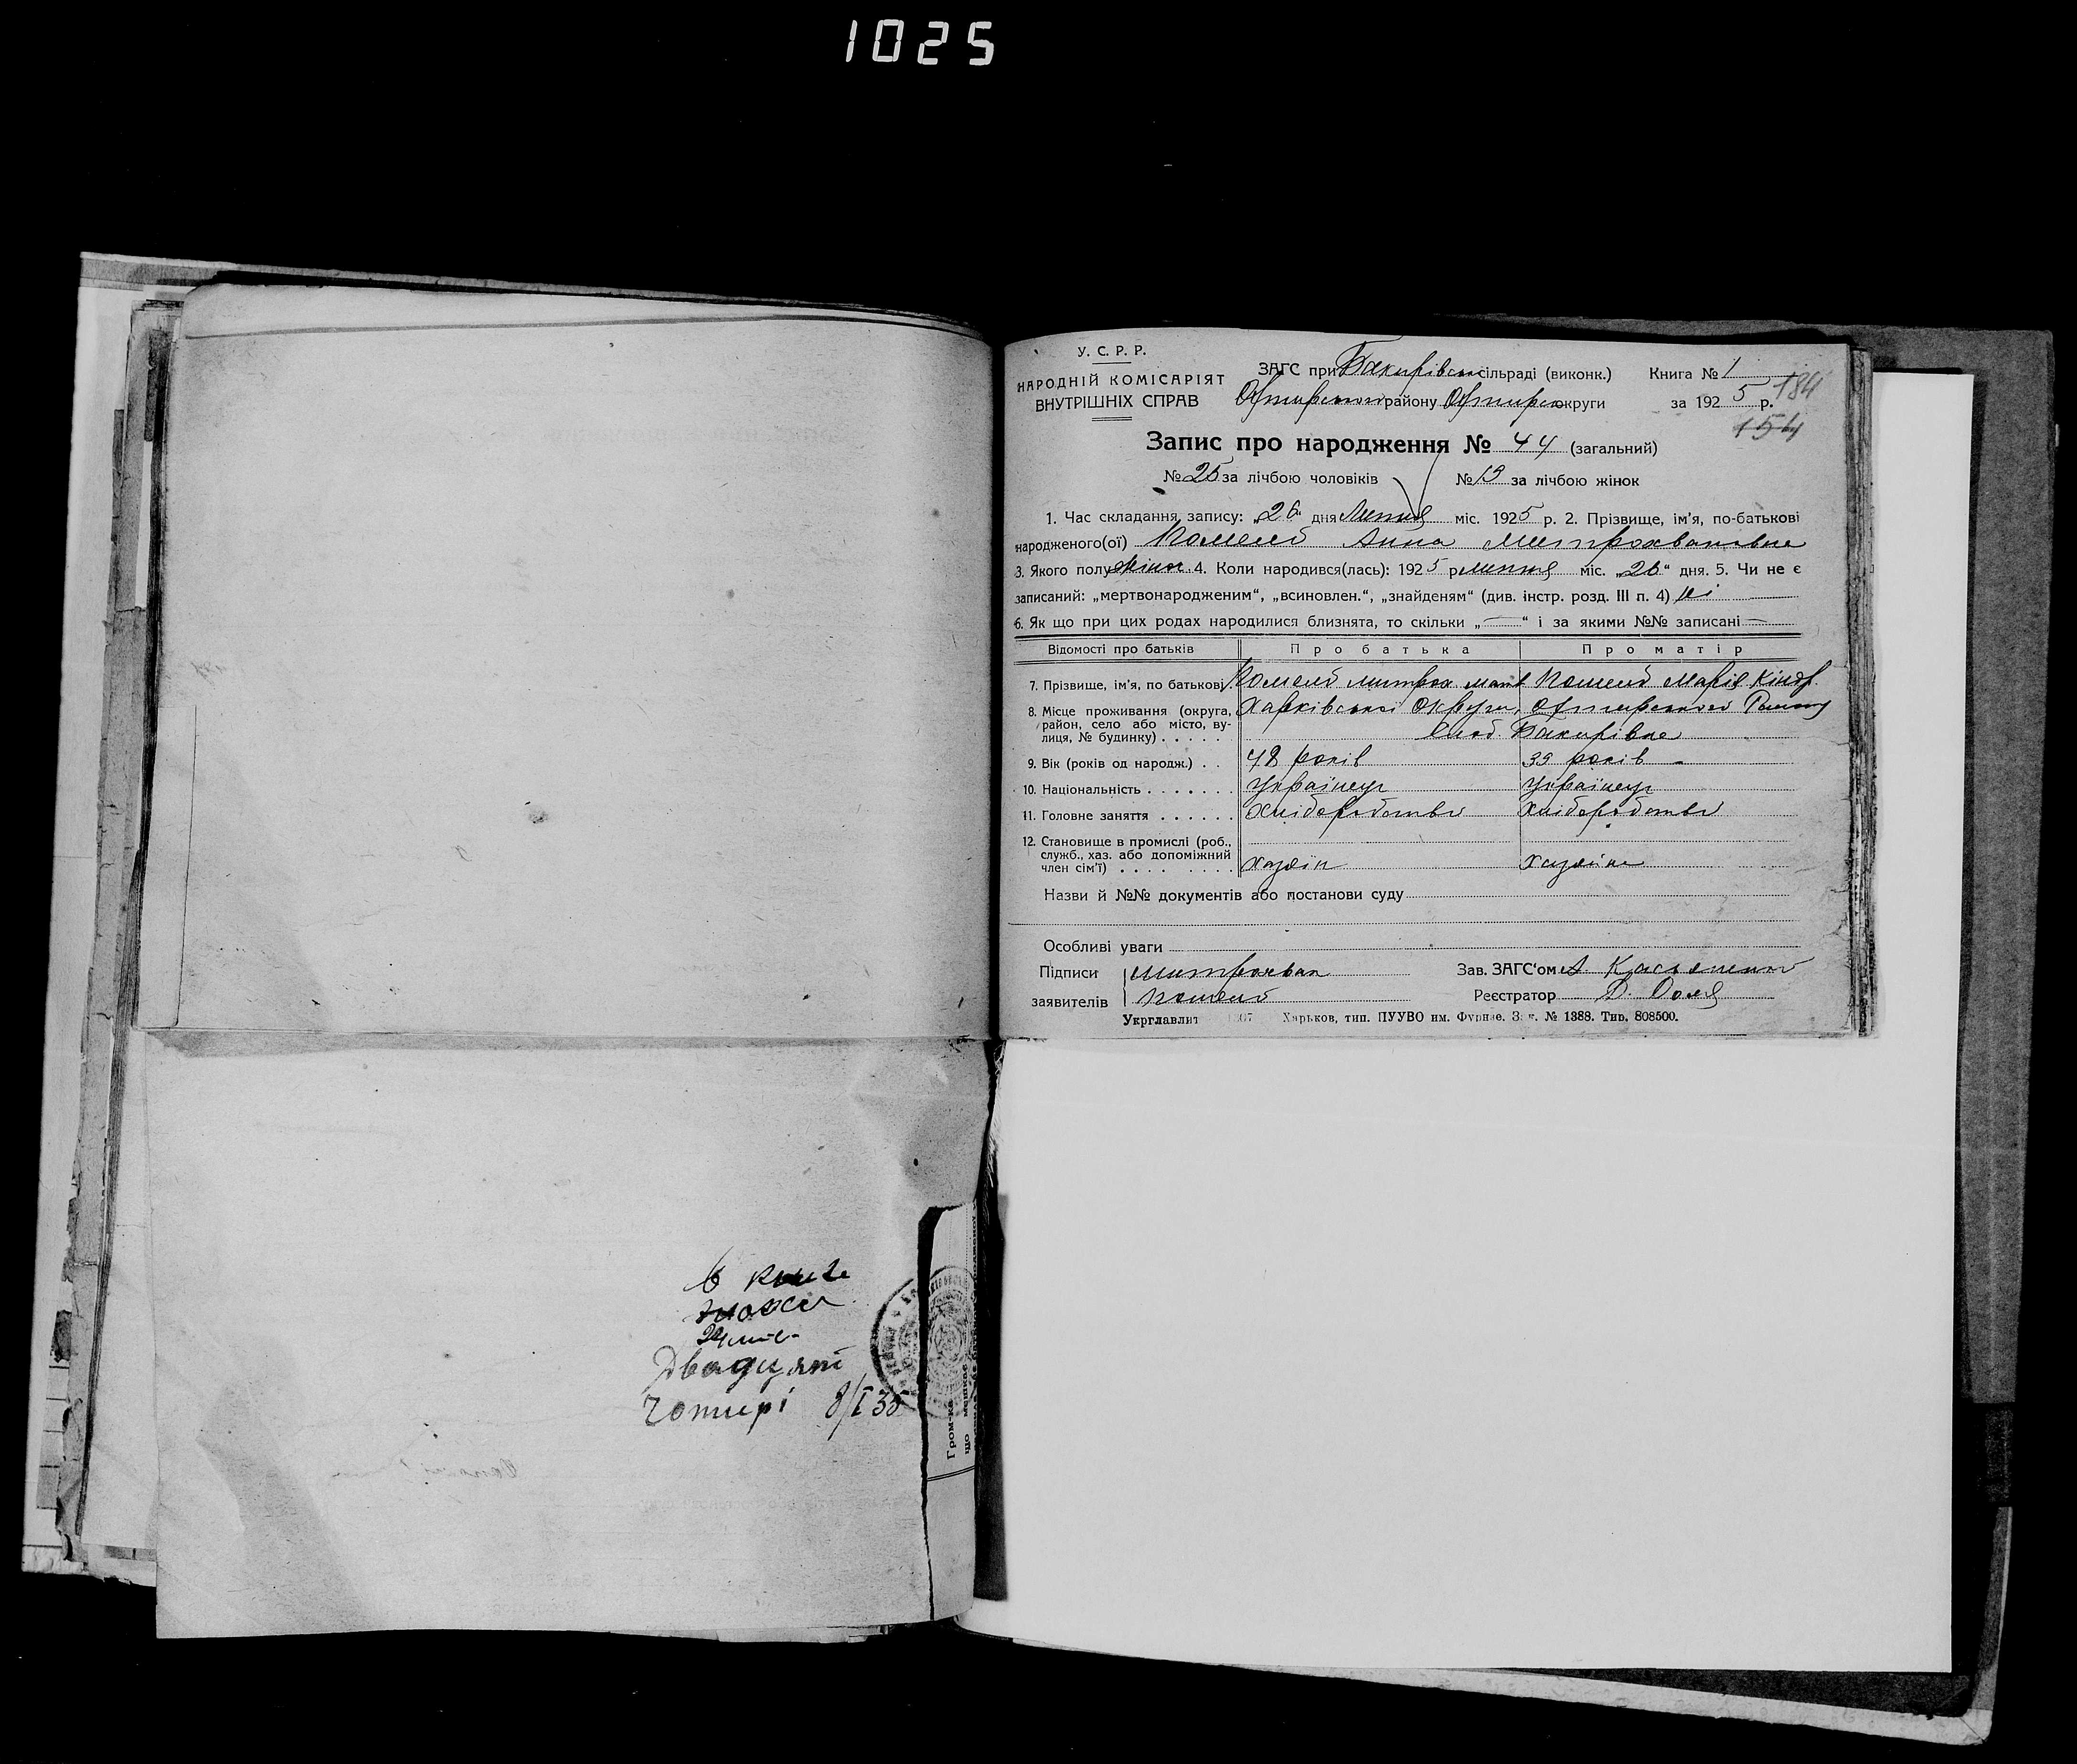 1025
У. С. Р. Р.
НАРОДНІЙ КОМІСАРІЯТ
ВНУТРІШНІХ СПРАВ
ЗАГС при Бакирівськ сільраді (виконк.) Книга № 1
району округи за 1925 р. 184
154
Запис про народження № 44 (загальний)
№ 25 за лічбою чоловіків № 19 за лічбою жінок
1. Час складання запису: „26“ дня Липня міс. 1925 р. 2. Прізвище, ім'я, по-батькові
народженого(ої) Анна Митрохвановна
3. Якого полу жіноч. 4. Коли народився(лась): 1925 р липня міс. „26“ дня. 5. Чи не є
записаний: „мертвонародженим“, „всиновлен.“, „знайденям“ (див. інстр. розд. III п. 4) ні
6. Як що при цих родах народилися близнята, то скільки „—“ і за якими №№ записані —
Відомості про батьків Про батька Про матір
7. Прізвище, ім'я, по батькові Митрох Марія Кіндр.
8. Місце проживання (округа, район, село або місто, вулиця, № будинку) Харківської Округи,
Слоб. Бакирівка
9. Вік (років од народж.) 48 років 39 років
10. Національність Українец Українец
11. Головне заняття Хліборобство Хліборобство
12. Становище в промислі (роб., служб., хаз. або допоміжний член сім'ї) хазяїн хазяйка
Назви й №№ документів або постанови суду
Особливі уваги
Підписи Митрохван Зав. ЗАГС'ом
заявителів Реєстратор
Укрглавлит Харьков, тип. ПУУВО им. Фрунзе. Зак. № 1388. Тир. 808500.
В книге
24
Двадцят
Чотирі 8/I 35
Гром-ка
що мешкає